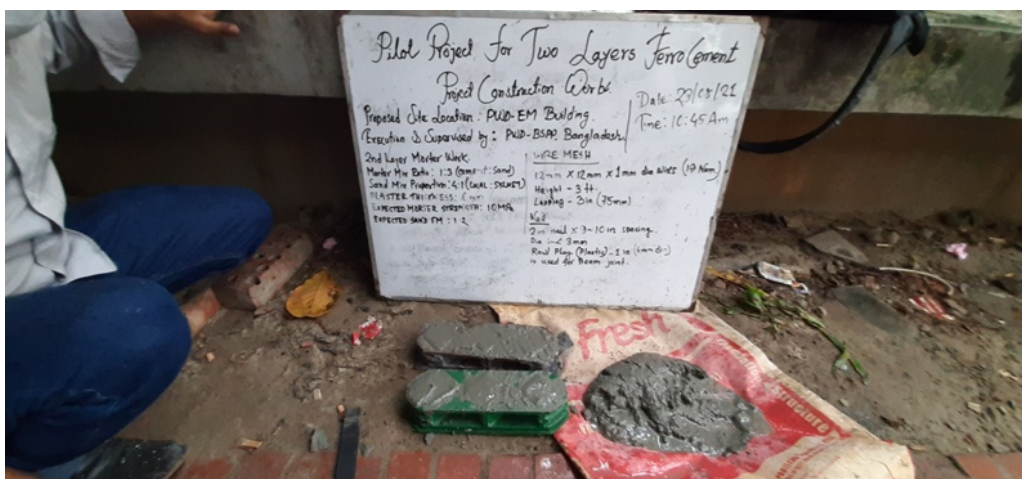 Pilot Project for Two Layers Ferrocement
Project Construction Works.
Date: 23/08/21
Time: 10:45 Am
Proposed Site Location: PWD-EM Building.
Execution & Supervised by: PWD-BSPP, Bangladesh
2nd Layer Morter Work
Morter Mix Ratio: 1:3 (cement:sand)
Sand Mix Proportion: 4:1 (LOCAL:SYLHET)
PLASTER THICKNESS: 6 mm
EXPECTED MORTER STRENGTH: 10 MPa
EXPECTED SAND FM: 1.2
WIRE MESH
12mm X 12mm X 1mm dia wires
Height - 3 ft.
Lapping - 3in (75mm)
Nail
2in nail x 3~10 in spacing.
Dia in < 3mm
Rawl Plug (Plastic) - 1 in
is used for Beam joint.
Fresh